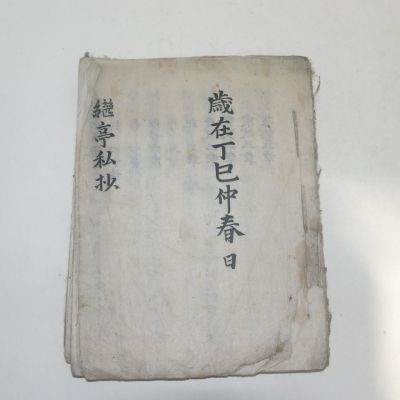 歲在丁巳仲春日
繼亭私抄